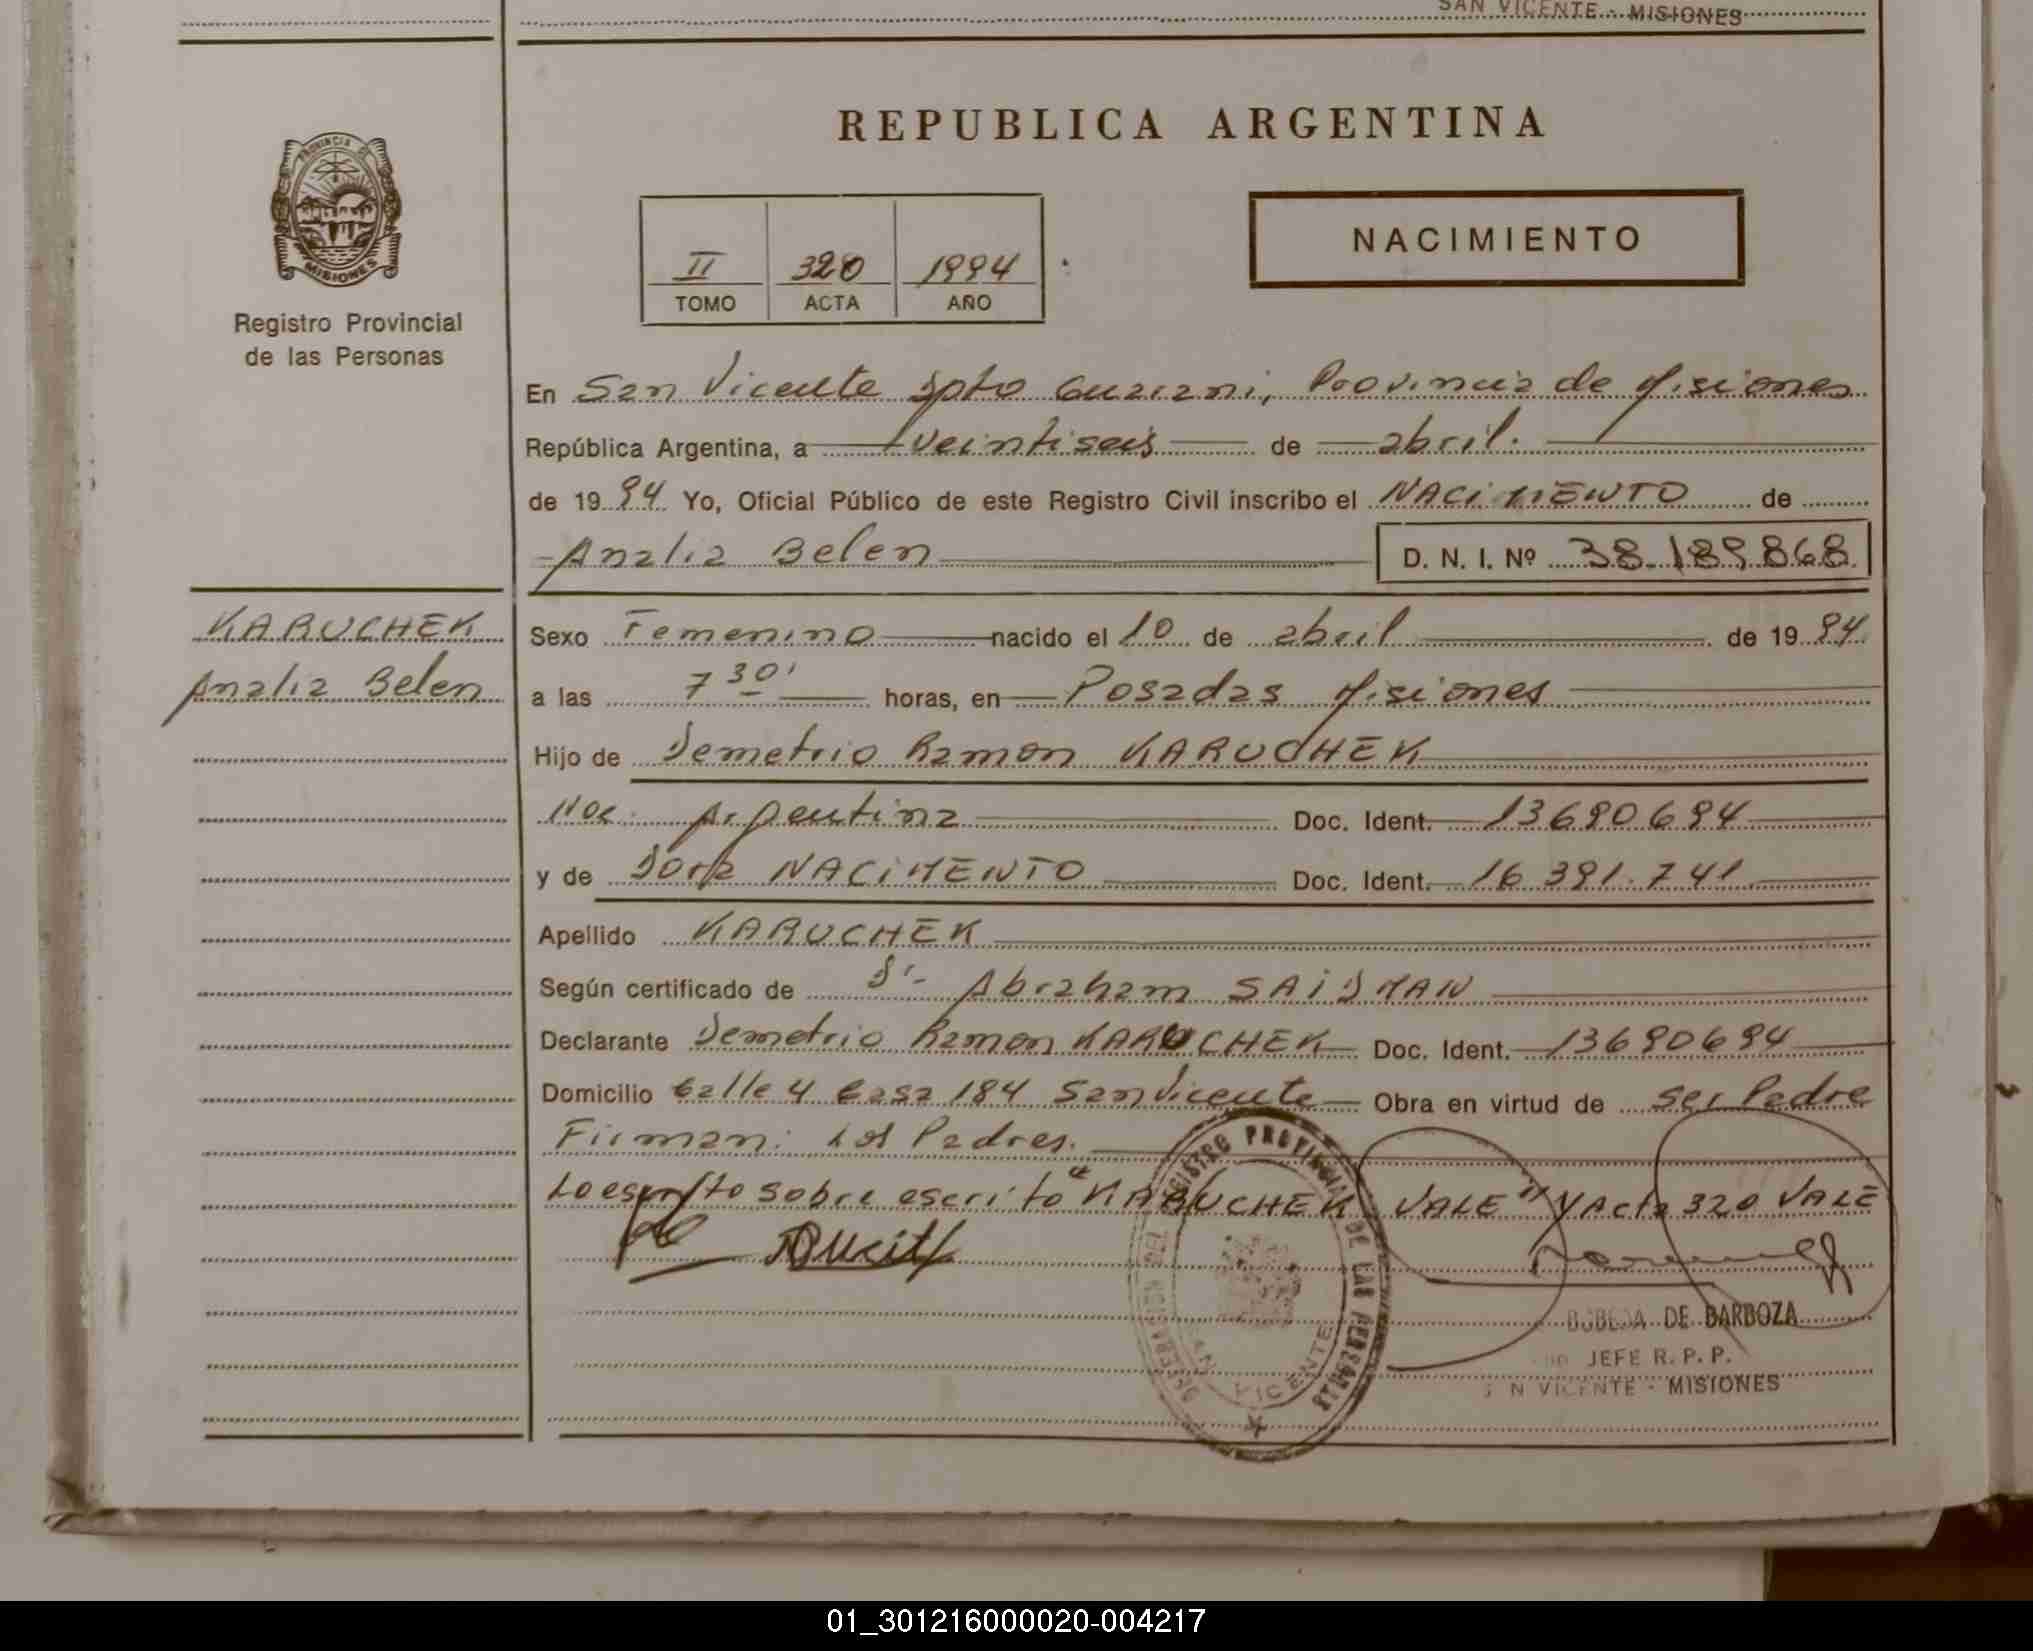 SAN VICENTE - MISIONES
REPUBLICA ARGENTINA
PROVINCIA DE
MISIONES
Registro Provincial
de las Personas
II 320 1994
TOMO ACTA AÑO
NACIMIENTO
En San Vicente Dpto Guarani, Provincia de Misiones
República Argentina, a veintiseis de abril.
de 1994 Yo, Oficial Público de este Registro Civil inscribo el NACIMIENTO de
Analia Belen D. N. I. Nº 38.189.868
KARUCHEK
Analia Belen
Sexo Femenino nacido el 10 de abril de 1994
a las 7 30' horas, en Posadas Misiones
Hijo de Demetrio Ramon KARUCHEK
Nac. Argentina Doc. Ident. 13690694
y de Dora NACIMENTO Doc. Ident. 16.391.741
Apellido KARUCHEK
Según certificado de Dr. Abraham SAIDMAN
Declarante Demetrio Ramon KARUCHEK Doc. Ident. 13690694
Domicilio Calle 4 Casa 184 San Vicente Obra en virtud de ser Padre
Firman: Los Padres.
Lo escrito sobre escrito "KARUCHEK VALE" y Acta 320 VALE
REGISTRO PROVINCIAL DE LAS PERSONAS
SAN VICENTE
DE BARBOZA
JEFE R. P. P.
SAN VICENTE - MISIONES
01_301216000020-004217